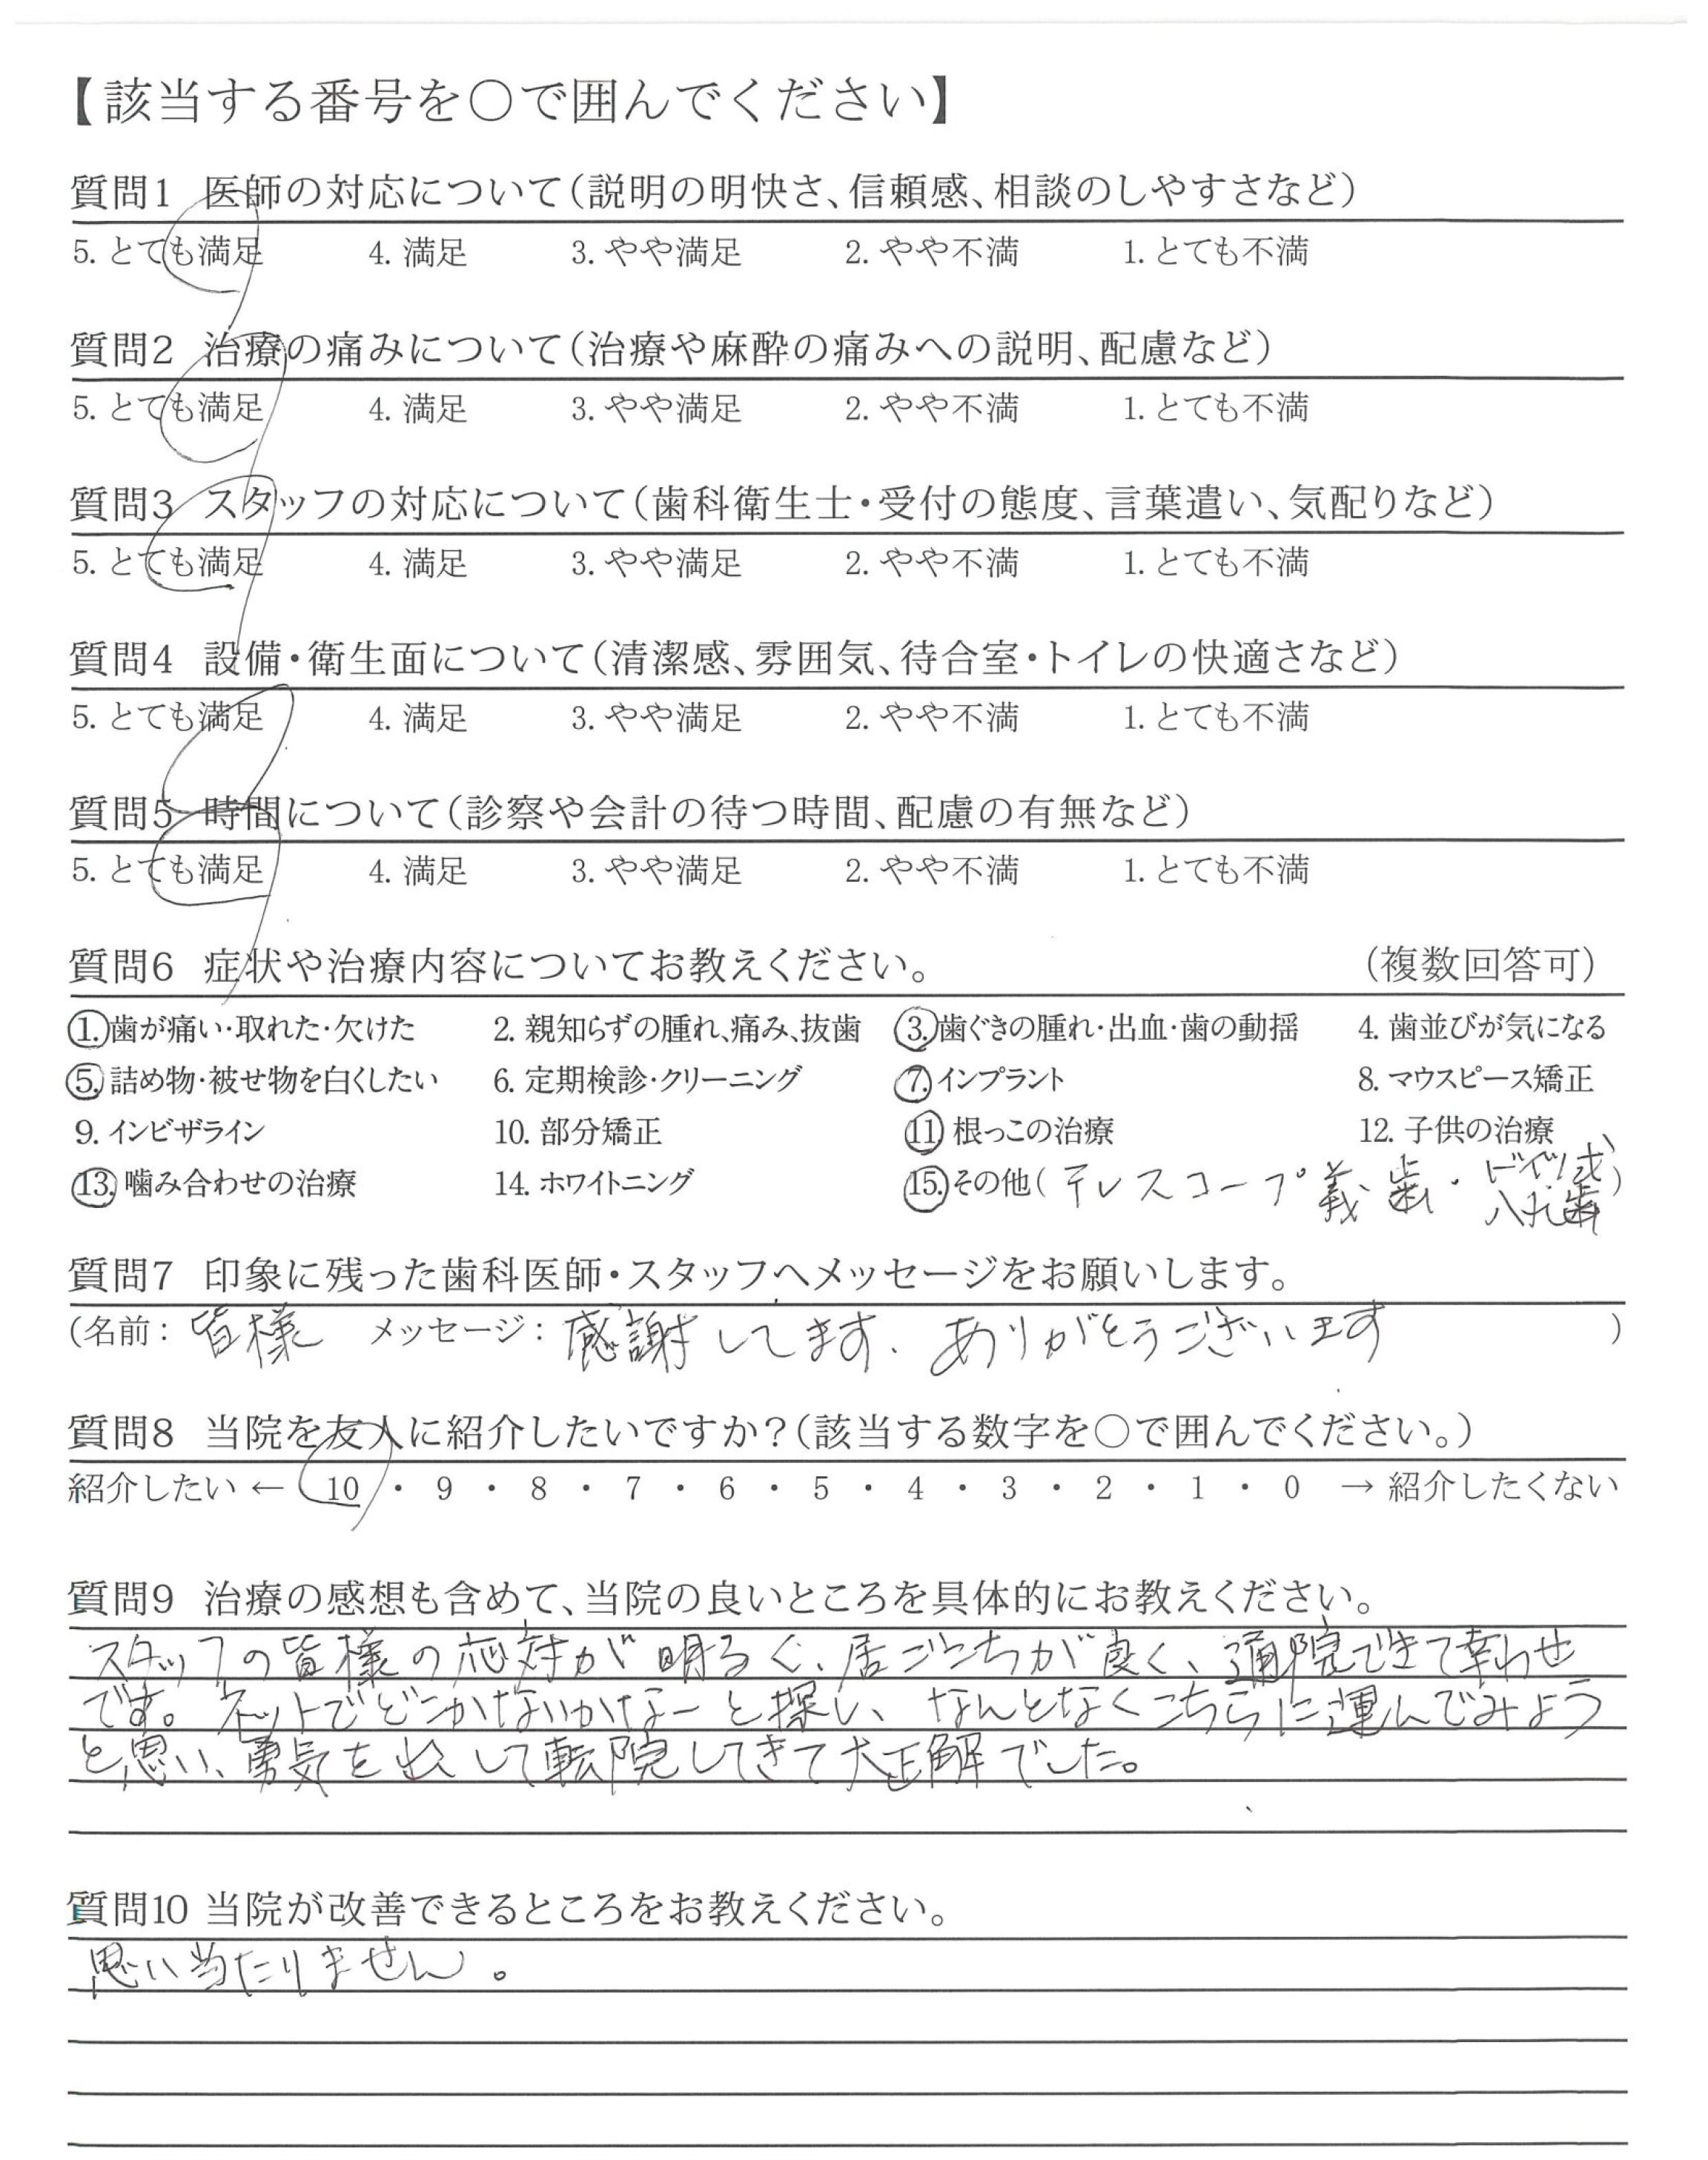 【該当する番号を○で囲んでください】
質問1 医師の対応について(説明の明快さ、信頼感、相談のしやすさなど)
5. とても満足 4. 満足 3. やや満足 2. やや不満 1. とても不満
質問2 治療の痛みについて(治療や麻酔の痛みへの説明、配慮など)
5. とても満足 4. 満足 3. やや満足 2. やや不満 1. とても不満
質問3 スタッフの対応について(歯科衛生士・受付の態度、言葉遣い、気配りなど)
5. とても満足 4. 満足 3. やや満足 2. やや不満 1. とても不満
質問4 設備・衛生面について(清潔感、雰囲気、待合室・トイレの快適さなど)
5. とても満足 4. 満足 3. やや満足 2. やや不満 1. とても不満
質問5 時間について(診察や会計の待つ時間、配慮の有無など)
5. とても満足 4. 満足 3. やや満足 2. やや不満 1. とても不満
質問6 症状や治療内容についてお教えください。 (複数回答可)
1. 歯が痛い・取れた・欠けた 2. 親知らずの腫れ、痛み、抜歯 3. 歯ぐきの腫れ・出血・歯の動揺 4. 歯並びが気になる
5. 詰め物・被せ物を白くしたい 6. 定期検診・クリーニング 7. インプラント 8. マウスピース矯正
9. インビザライン 10. 部分矯正 11 根っこの治療 12. 子供の治療
13. 噛み合わせの治療 14. ホワイトニング 15. その他(テレスコープ義歯・ドイツ式入れ歯)
質問7 印象に残った歯科医師・スタッフへメッセージをお願いします。
(名前:皆様 メッセージ:感謝してます. ありがとうございます)
質問8 当院を友人に紹介したいですか?(該当する数字を○で囲んでください。)
紹介したい ← 10 ・ 9 ・ 8 ・ 7 ・ 6 ・ 5 ・ 4 ・ 3 ・ 2 ・ 1 ・ 0 → 紹介したくない
質問9 治療の感想も含めて、当院の良いところを具体的にお教えください。
スタッフの皆様の応対が明るく、居ごこちが良く、通院できて幸わせ
です。ネットでどこかないかなーと探し、なんとなくこちらに運んでみよう
と思い、勇気を出して転院してきて大正解でした。
質問10 当院が改善できるところをお教えください。
思い当たりません。